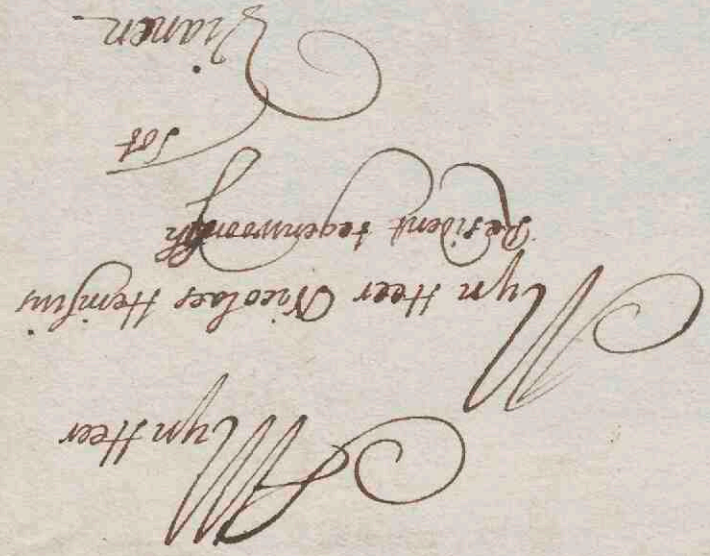 Myn Heer
Myn Heer Nicolaes Heinsius
Resident tegenwoordich
Tot
Vianen